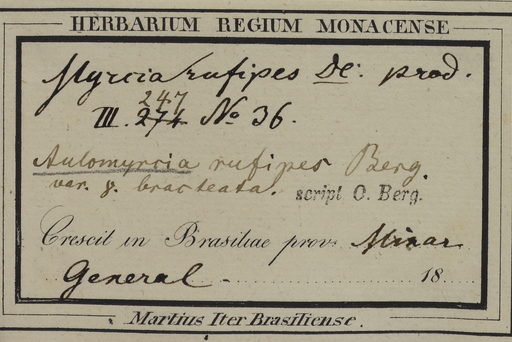 HERBARIUM REGIUM MONACENSE
Myrcia rufipes DC: prod.
247
III. 274 No 36.
Aulomyrcia rufipes Berg.
var. γ. bracteata.
script O. Berg.
Crescit in Brasiliae prov. Minar
General 18
Martius Iter Brasiliense.